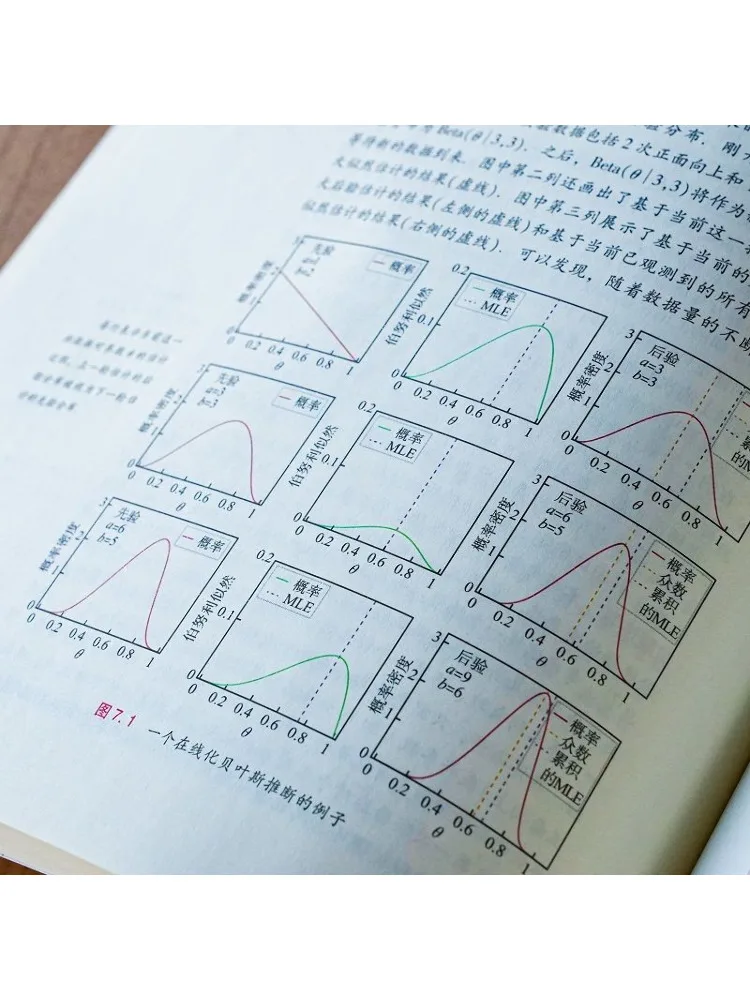 数据包括2次正面向上和
Beta(θ|3,3). 之后, Beta(θ|3,3)将作为
等待新的数据到来. 图中第二列还画出了基于当前这一
大似然估计的结果(虚线). 图中第三列展示了基于当前的
大后验估计的结果(左侧的虚线)和基于当前已观测到的所有
似然估计的结果(右侧的虚线). 可以发现, 随着数据量的不断
3
2
1
0
概率密度
先验
概率
0.2 0.4 0.6 0.8 1
θ
0.2
0.1
0
伯努利似然
概率
MLE
0 0.2 0.4 0.6 0.8 1
θ
3
2
1
0
概率密度
后验
a=3
b=3
概率
0 0.2 0.4 0.6 0.8 1
θ
3
2
1
0
概率密度
先验
a=3
b=3
概率
0.2 0.4 0.6 0.8 1
θ
0.2
0.1
0
伯努利似然
概率
MLE
0.2 0.4 0.6 0.8 1
θ
3
2
1
0
概率密度
后验
a=6
b=5
概率
众数
累积
的MLE
0.2 0.4 0.6 0.8 1
θ
3
2
1
0
概率密度
先验
a=6
b=5
概率
0.2 0.4 0.6 0.8 1
θ
0.2
0.1
0
伯努利似然
概率
MLE
0 0.2 0.4 0.6 0.8 1
θ
3
2
1
0
概率密度
后验
a=9
b=6
概率
众数
累积
的MLE
0 0.2 0.4 0.6 0.8 1
θ
图7.1 一个在线化贝叶斯推断的例子